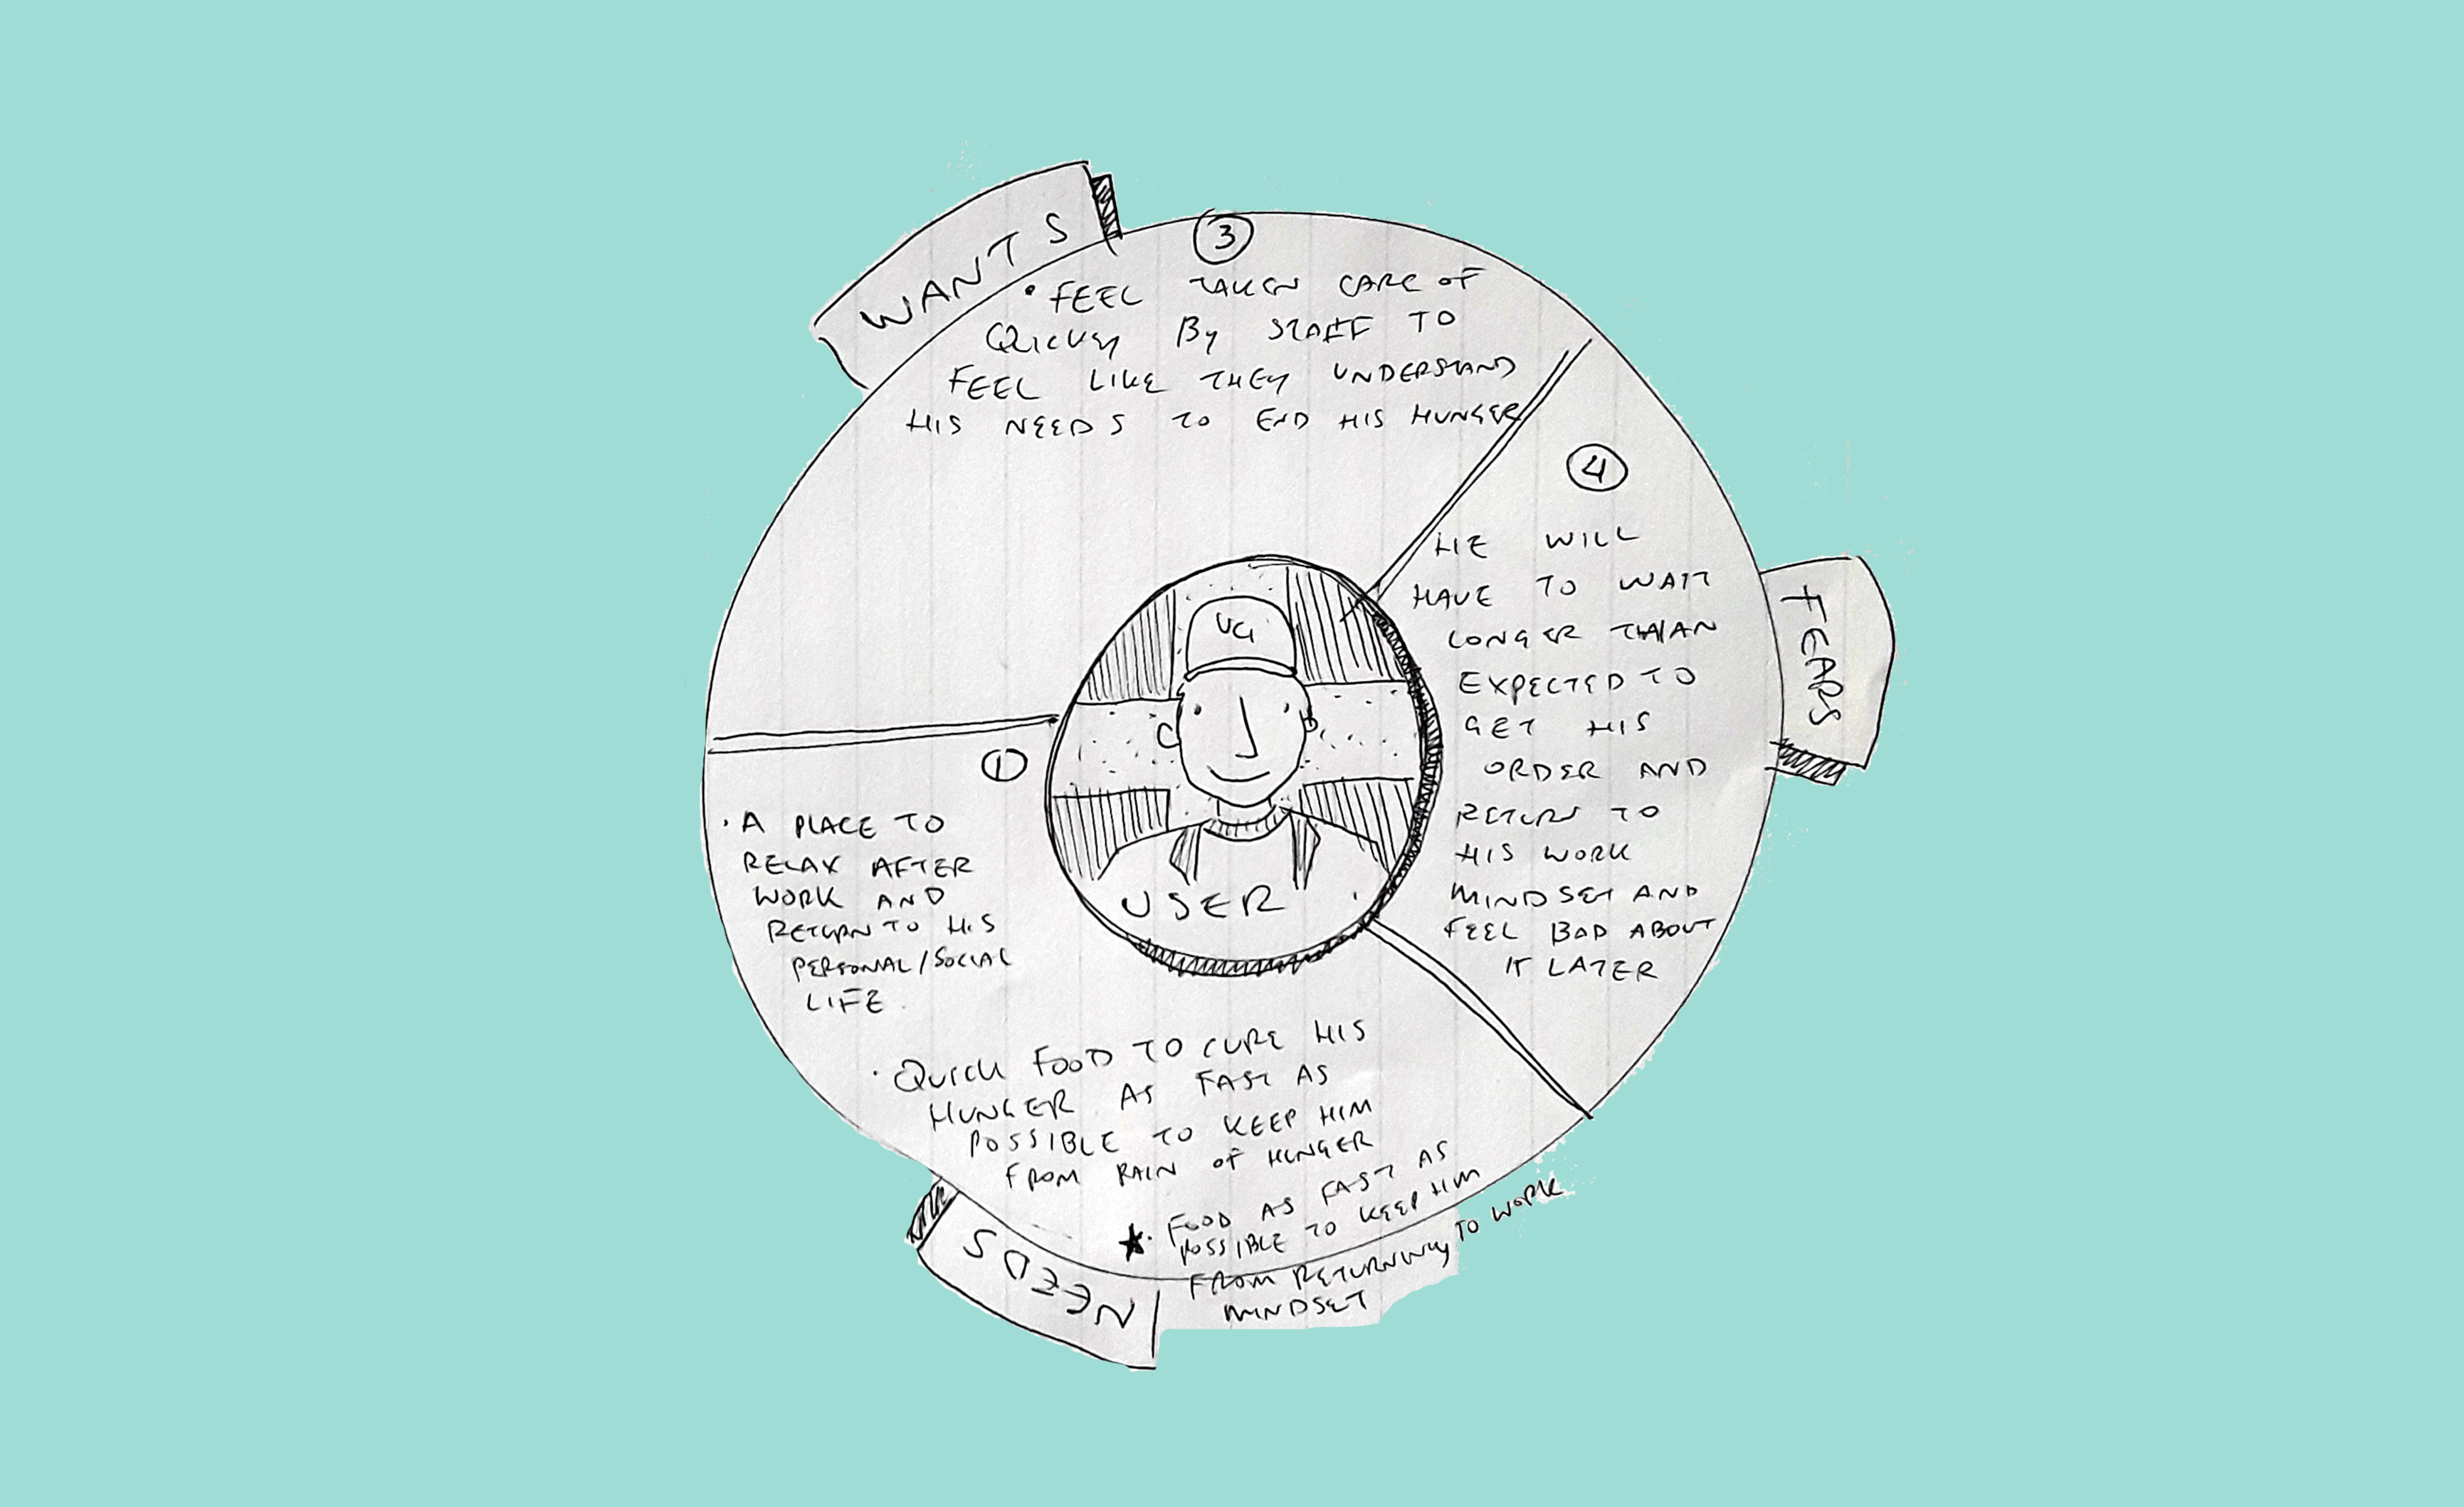 WANTS
3
• FEEL TAKEN CARE OF
QUICKLY BY STAFF TO
FEEL LIKE THEY UNDERSTAND
HIS NEEDS TO END HIS HUNGER
4
HE WILL
HAVE TO WAIT
LONGER THAN
EXPECTED TO
GET HIS
ORDER AND
RETURN TO
HIS WORK
MINDSET AND
FEEL BAD ABOUT
IT LATER
FEARS
UG
USER
1
• A PLACE TO
RELAX AFTER
WORK AND
RETURN TO HIS
PERSONAL/SOCIAL
LIFE.
• QUICK FOOD TO CURE HIS
HUNGER AS FAST AS
POSSIBLE TO KEEP HIM
FROM PAIN OF HUNGER
★• FOOD AS FAST AS
POSSIBLE TO KEEP HIM
FROM RETURNING TO WORK
MINDSET
NEEDS